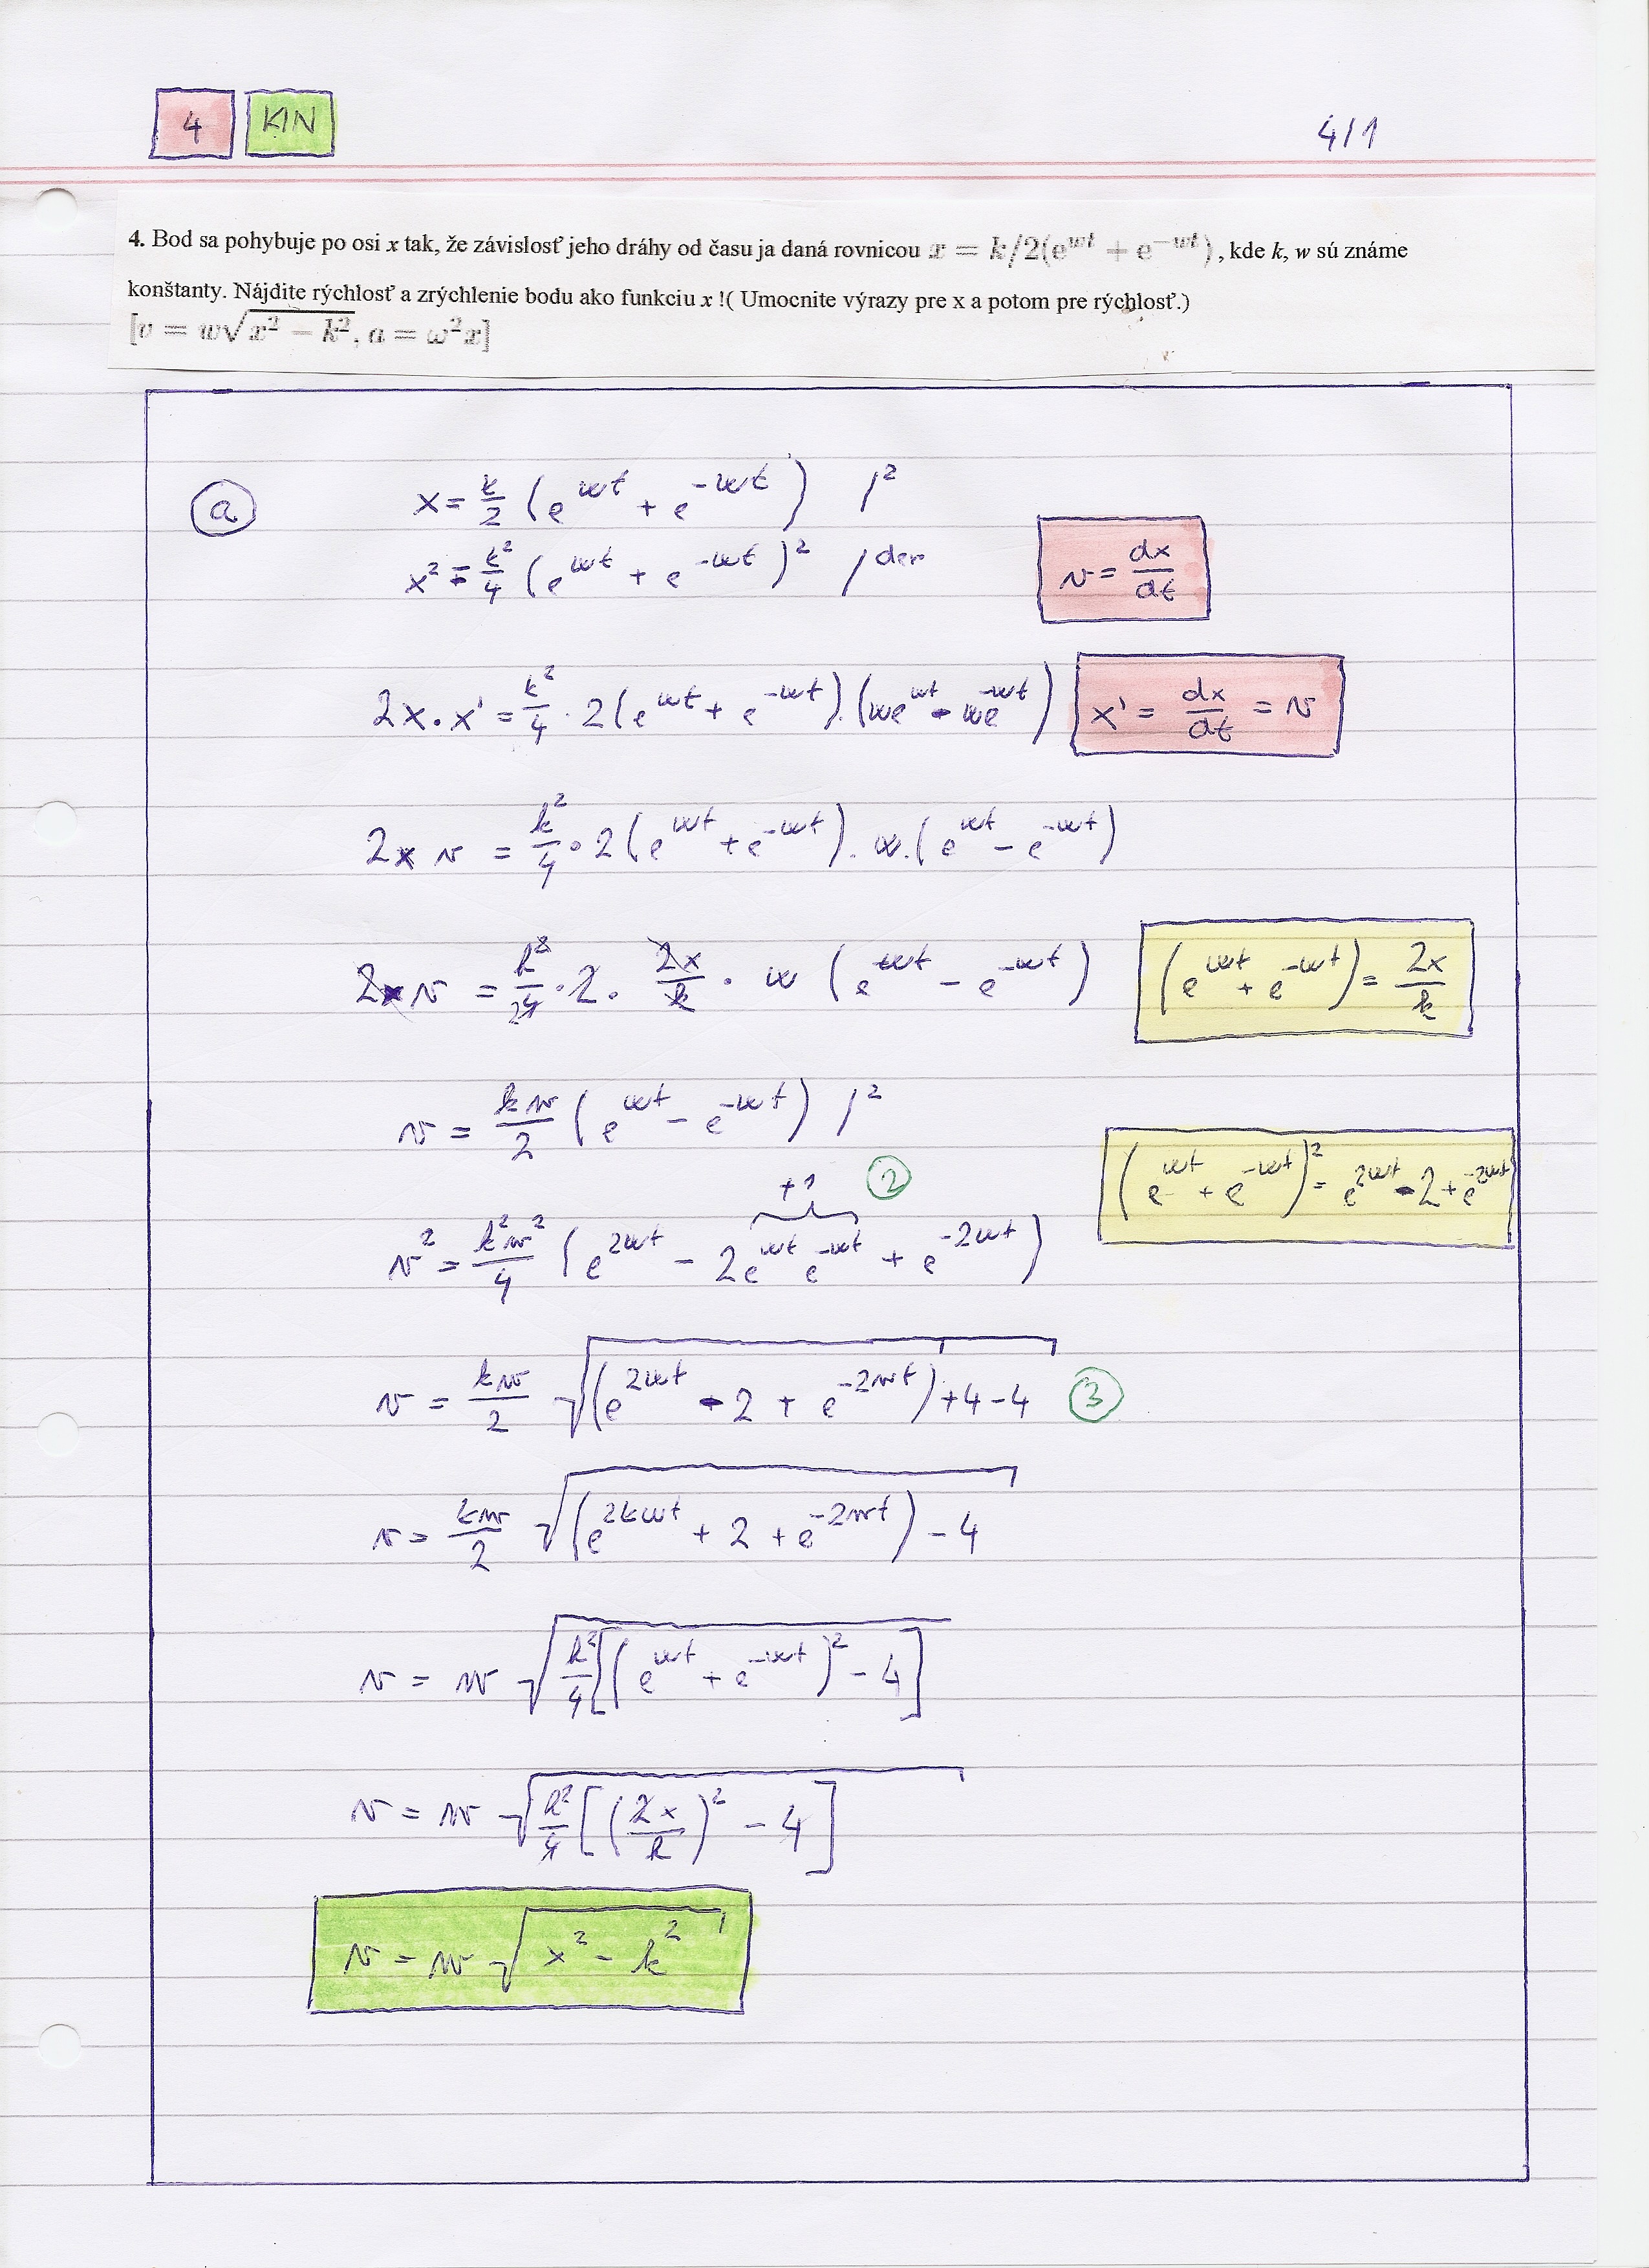 4 KIN 4/1
4. Bod sa pohybuje po osi x tak, že závislosť jeho dráhy od času ja daná rovnicou x = k/2(e^{wt} + e^{-wt}), kde k, w sú známe
konštanty. Nájdite rýchlosť a zrýchlenie bodu ako funkciu x !( Umocnite výrazy pre x a potom pre rýchlosť.)
[v = w√(x² − k²), a = ω²x]
a x = k/2 (e^{wt} + e^{-wt}) /²
x² = k²/4 (e^{wt} + e^{-wt})² / der
v = dx/dt
2x · x' = k²/4 · 2(e^{wt} + e^{-wt}) · (we^{wt} - we^{-wt}) x' = dx/dt = v
2x v = k²/4 · 2(e^{wt} + e^{-wt}) · w · (e^{wt} - e^{-wt})
2x v = k²/24 · 2 · 2x/k · w (e^{wt} - e^{-wt}) (e^{wt} + e^{-wt}) = 2x/k
v = kw/2 (e^{wt} - e^{-wt}) /²
(e^{wt} + e^{-wt})² = e^{2wt} - 2 + e^{-2wt}
+1 2
v² = k²w²/4 (e^{2wt} - 2e^{wt}e^{-wt} + e^{-2wt})
v = kw/2 √((e^{2wt} - 2 + e^{-2wt}) + 4 - 4) 3
v = kw/2 √((e^{2kwt} + 2 + e^{-2wt}) - 4)
v = w √(k²/4 [(e^{wt} + e^{-wt})² - 4])
v = w √(k²/4 [(2x/k)² - 4])
v = w √(x² - k²)